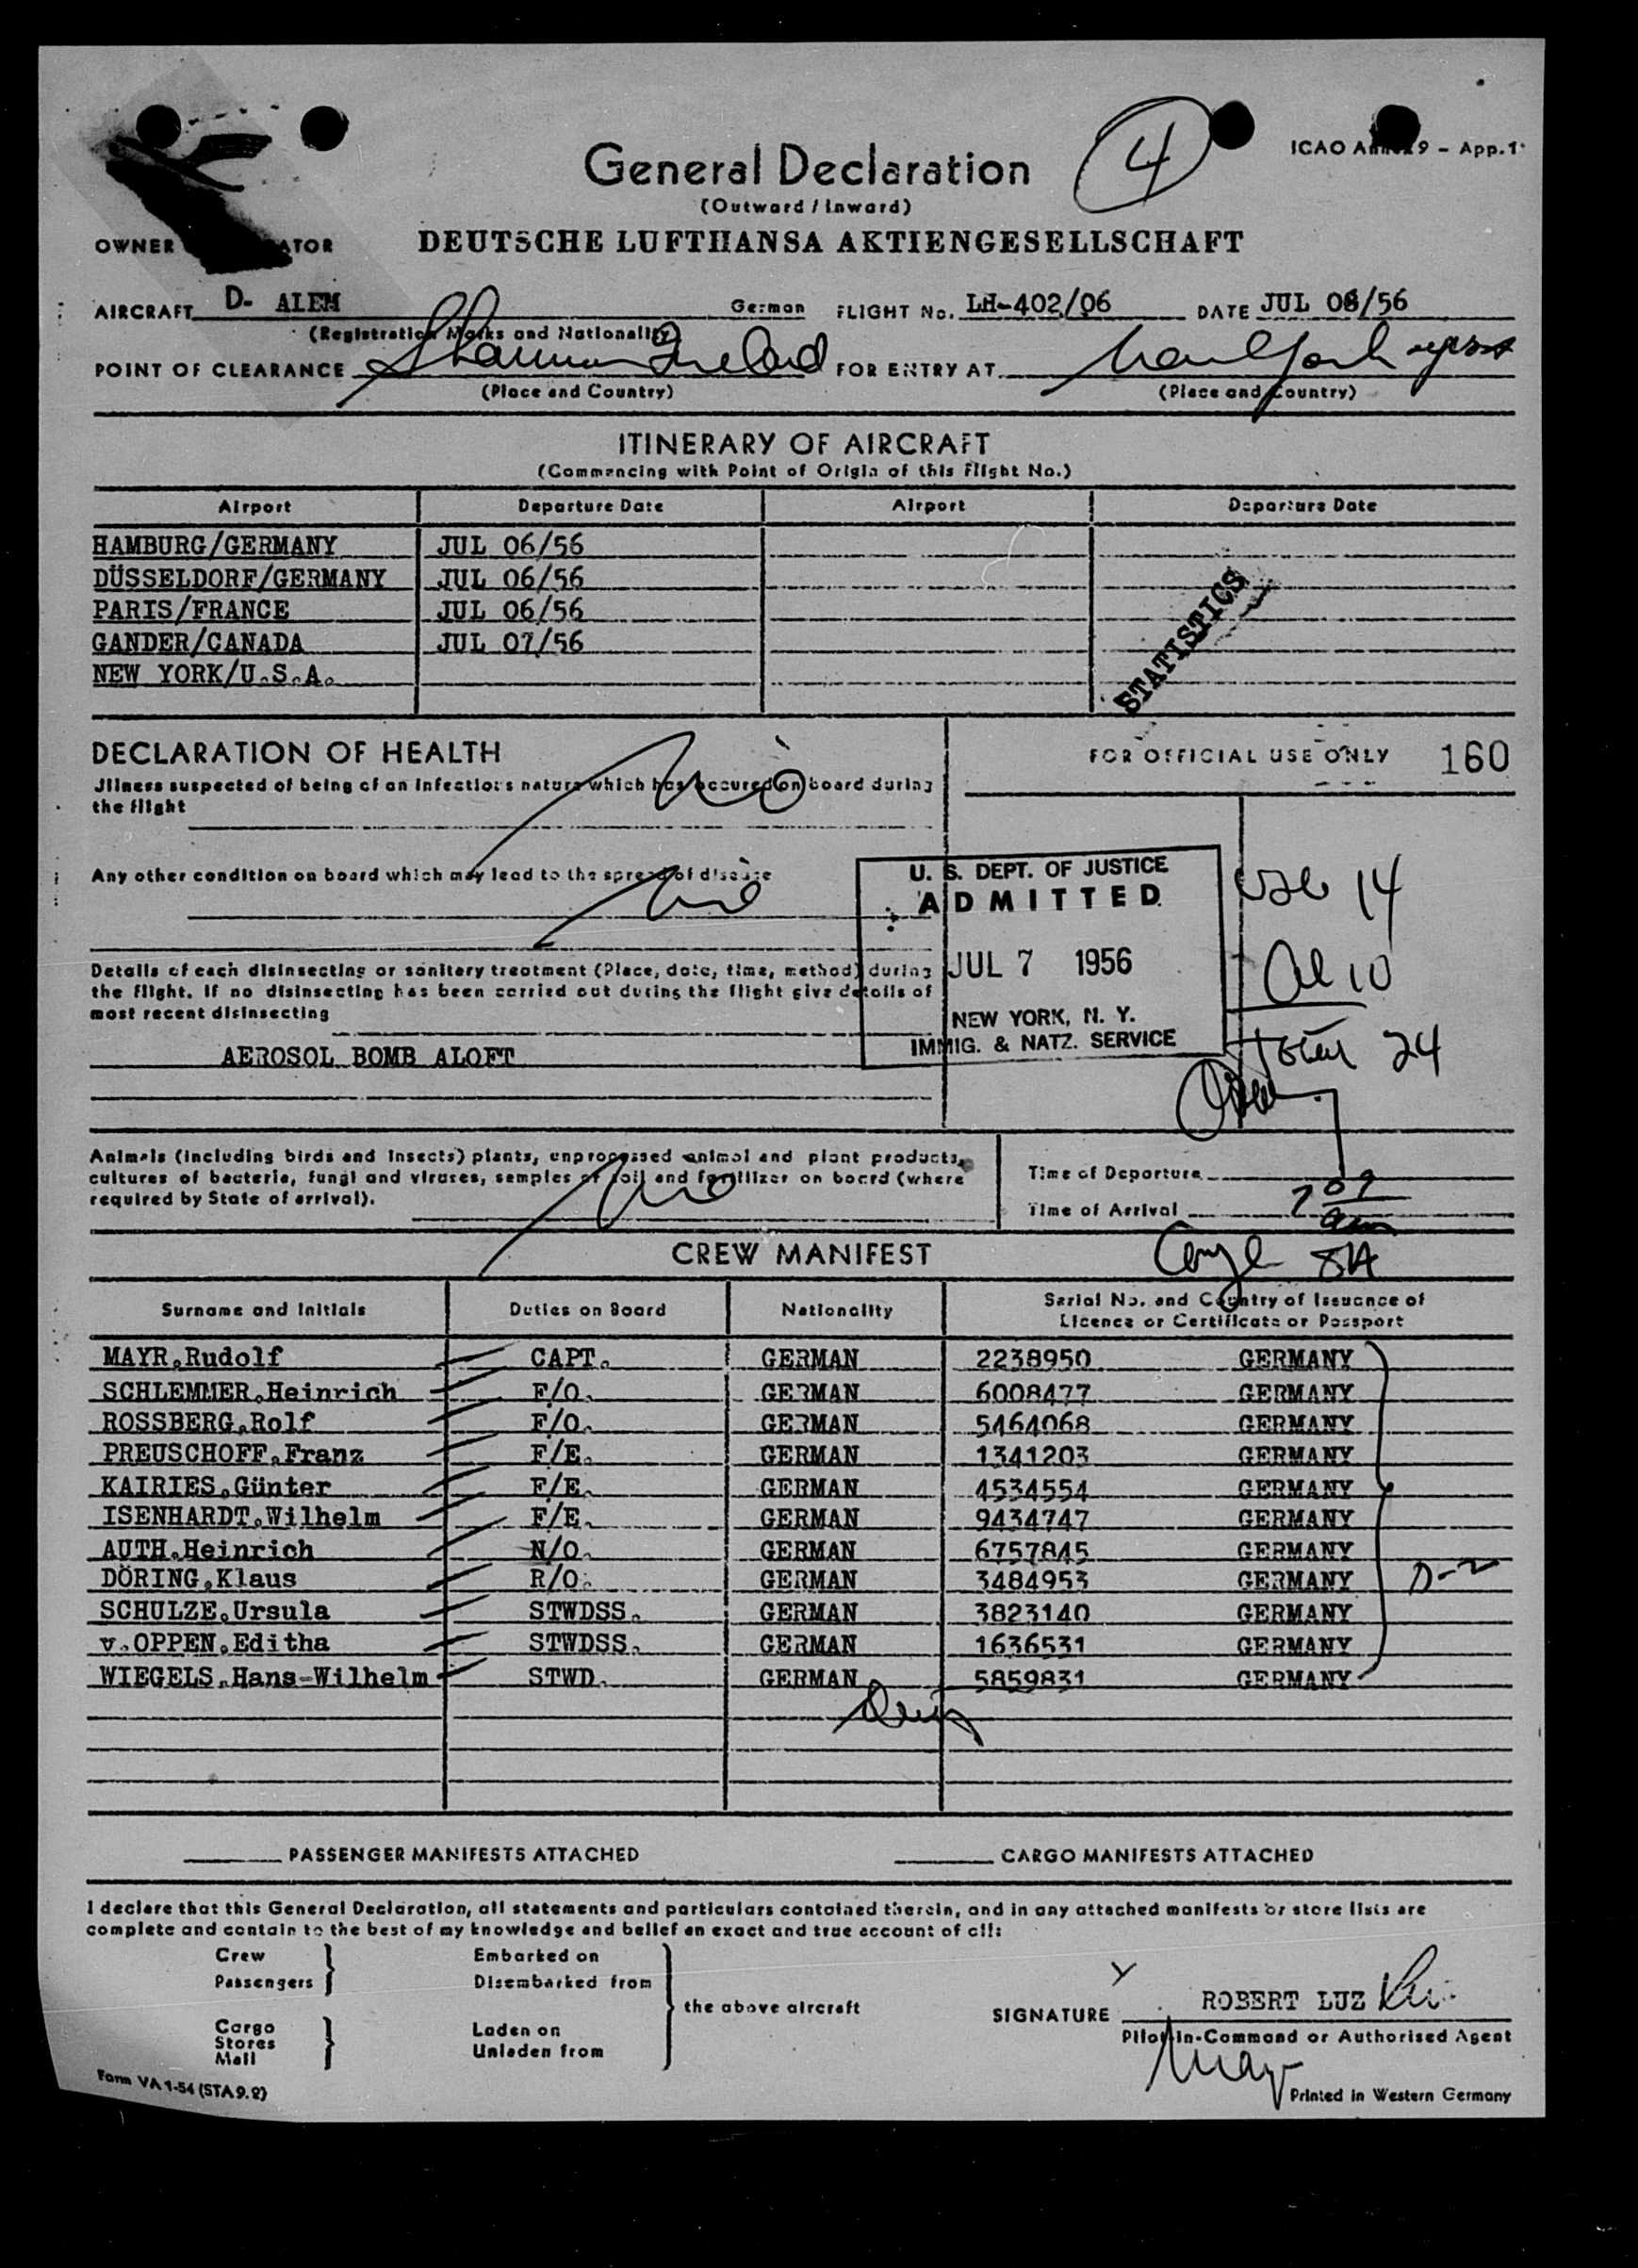 4
ICAO Annex 9 - App. 1
General Declaration
(Outward / Inward)
OWNER ATOR DEUTSCHE LUFTHANSA AKTIENGESELLSCHAFT
AIRCRAFT D- ALEM German FLIGHT No. LH-402/06 DATE JUL 06/56
(Registration Marks and Nationality)
POINT OF CLEARANCE Shannon Ireland FOR ENTRY AT New York
(Place and Country) (Place and Country)
ITINERARY OF AIRCRAFT
(Commencing with Point of Origin of this Flight No.)
Airport Departure Date Airport Departure Date
HAMBURG/GERMANY JUL 06/56
DÜSSELDORF/GERMANY JUL 06/56
PARIS/FRANCE JUL 06/56
GANDER/CANADA JUL 07/56
NEW YORK/U.S.A.
STATISTICS
DECLARATION OF HEALTH
FOR OFFICIAL USE ONLY 160
Illness suspected of being of an infectious nature which has occured on board during
the flight
no
Any other condition on board which may lead to the spread of disease
no
U. S. DEPT. OF JUSTICE
ADMITTED
JUL 7 1956
NEW YORK, N. Y.
IMMIG. & NATZ. SERVICE
USC 14
Al 10
Total 24
Details of each disinsecting or sanitary treatment (Place, date, time, method) during
the flight. If no disinsecting has been carried out during the flight give details of
most recent disinsecting
AEROSOL BOMB ALOFT
Animals (including birds and insects) plants, unprocessed animal and plant products,
cultures of bacteria, fungi and viruses, samples of soil and fertilizer on board (where
required by State of arrival).
no
Time of Departure
Time of Arrival 7 09 am
CREW MANIFEST
Surname and Initials Duties on Board Nationality Serial No. and Country of Issuance of
Licence or Certificate or Passport
MAYR,Rudolf CAPT. GERMAN 2238950 GERMANY
SCHLEMMER,Heinrich F/O. GERMAN 6008477 GERMANY
ROSSBERG,Rolf F/O. GERMAN 5464068 GERMANY
PREUSCHOFF,Franz F/E. GERMAN 1341203 GERMANY
KAIRIES,Günter F/E. GERMAN 4534554 GERMANY
ISENHARDT,Wilhelm F/E. GERMAN 9434747 GERMANY
AUTH,Heinrich N/O. GERMAN 6757845 GERMANY
DÖRING,Klaus R/O. GERMAN 3484953 GERMANY D-2
SCHULZE,Ursula STWDSS. GERMAN 3823140 GERMANY
v.OPPEN,Editha STWDSS. GERMAN 1636531 GERMANY
WIEGELS,Hans-Wilhelm STWD. GERMAN 5859831 GERMANY
PASSENGER MANIFESTS ATTACHED CARGO MANIFESTS ATTACHED
I declare that this General Declaration, all statements and particulars contained therein, and in any attached manifests or store lists are
complete and contain to the best of my knowledge and belief an exact and true account of all:
Crew Embarked on
Passengers Disembarked from
the above aircraft
Cargo Laden on
Stores
Mail Unladen from
SIGNATURE ROBERT LUZ
Pilot-in-Command or Authorised Agent
Mayr
Form VA 1-54 (STA 9.2)
Printed in Western Germany